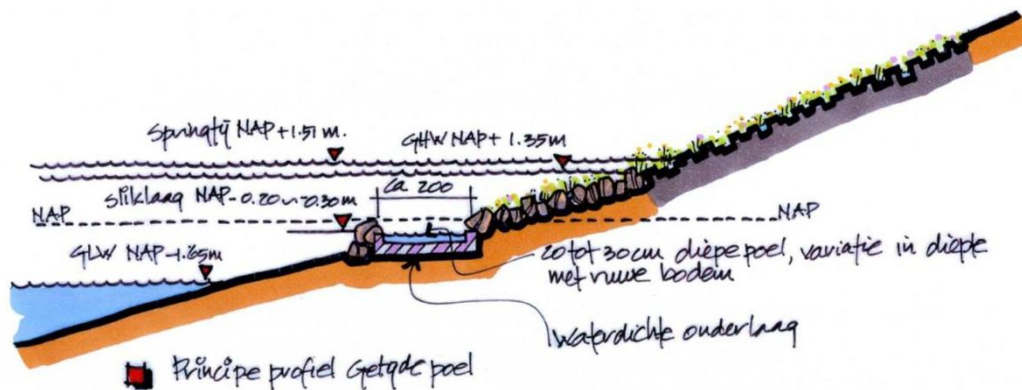 Springtij NAP+1.51 m.
GHW NAP+ 1.35m
ca. 200
sliklaag NAP-0.20 ~ -0.30m
NAP
NAP
GLW NAP-1.65m
20 tot 30cm diepe poel, variatie in diepte
met ruwe bodem
Waterdichte onderlaag
Principe profiel Getyde poel